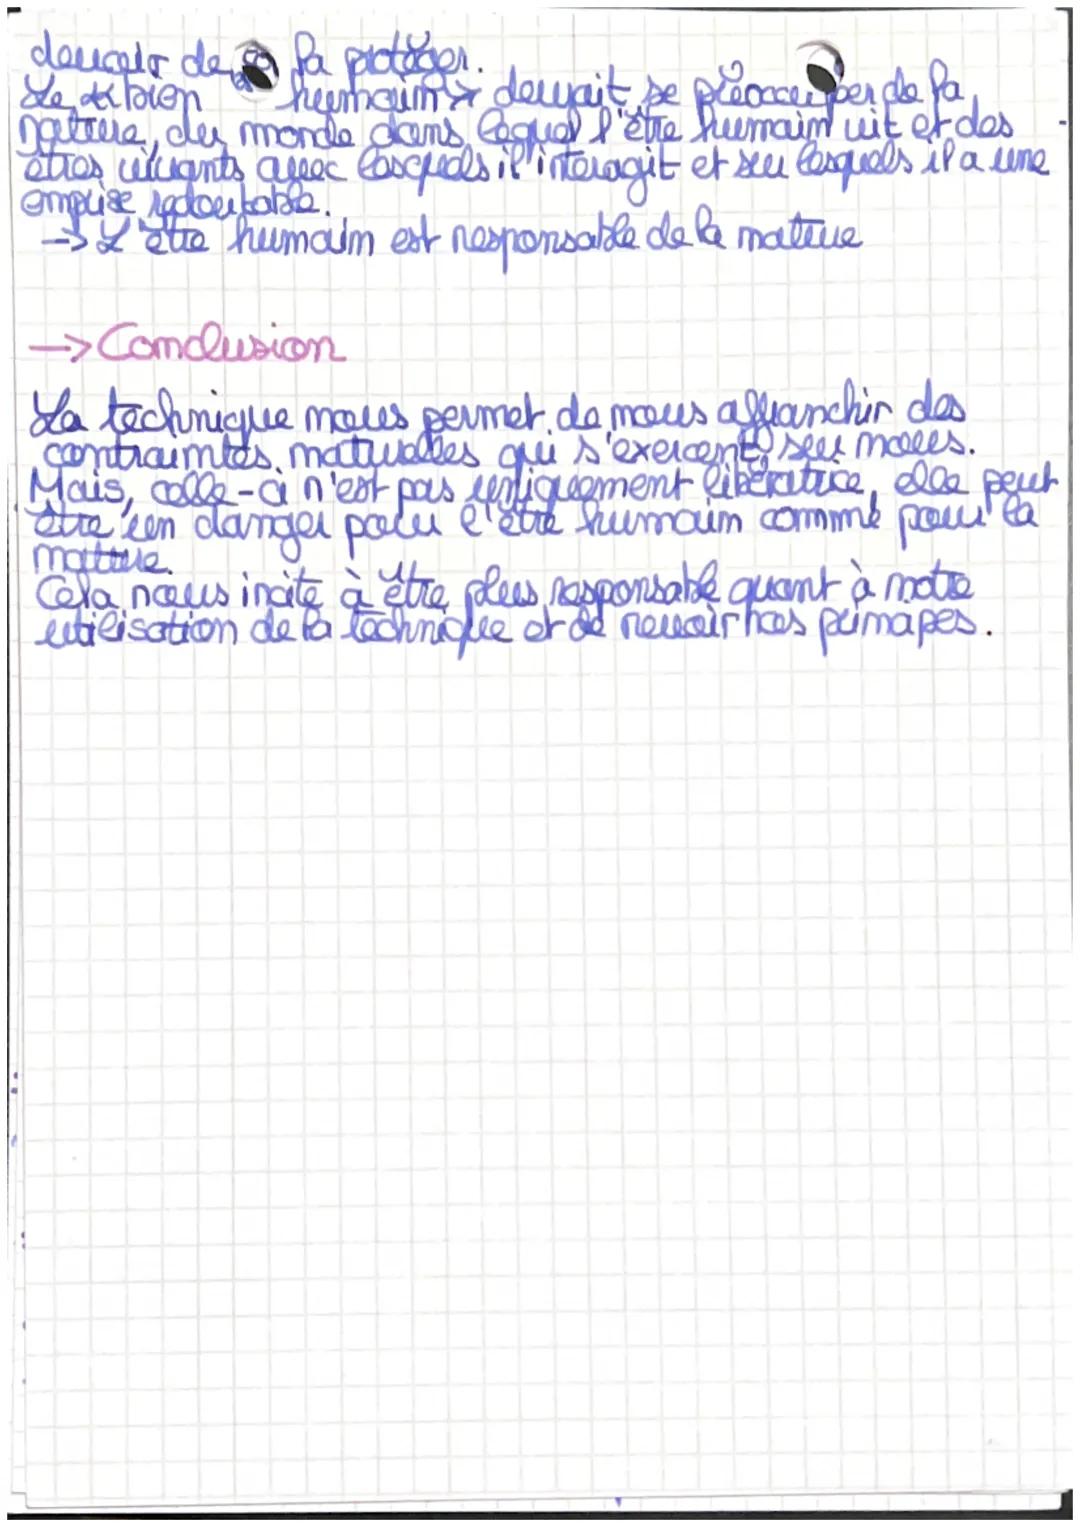 devoir de la protéger.
Le bien humain devrait se préoccuper de la
nature, du monde dans lequel l'être humain vit et des
êtres vivants avec lesquels il interagit et sur lesquels il a une
emprise redoutable.
-> L'être humain est responsable de la nature
-> Conclusion
La technique nous permet de nous affranchir des
contraintes naturelles qui s'exercent sur nous.
Mais, celle-ci n'est pas uniquement libératrice, elle peut
être un danger pour l'être humain comme pour la
nature.
Cela nous incite à être plus responsable quant à notre
utilisation de la technique et de revoir nos principes.